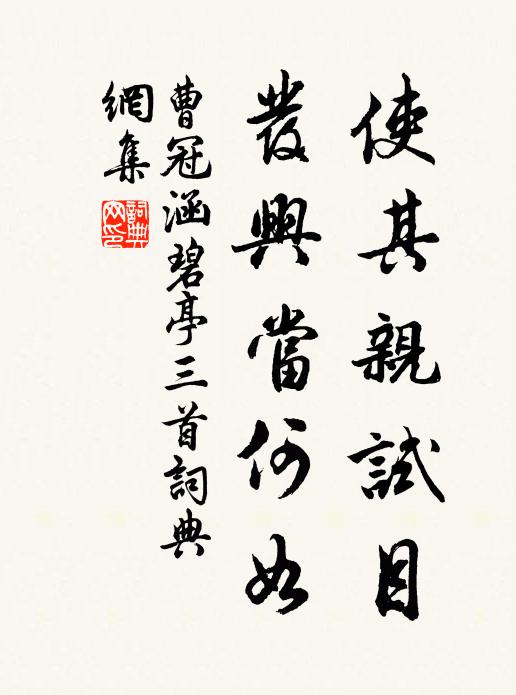 使其親試目
發興當何如
曹冠涵碧亭三首詞典
網集
詞典
网印